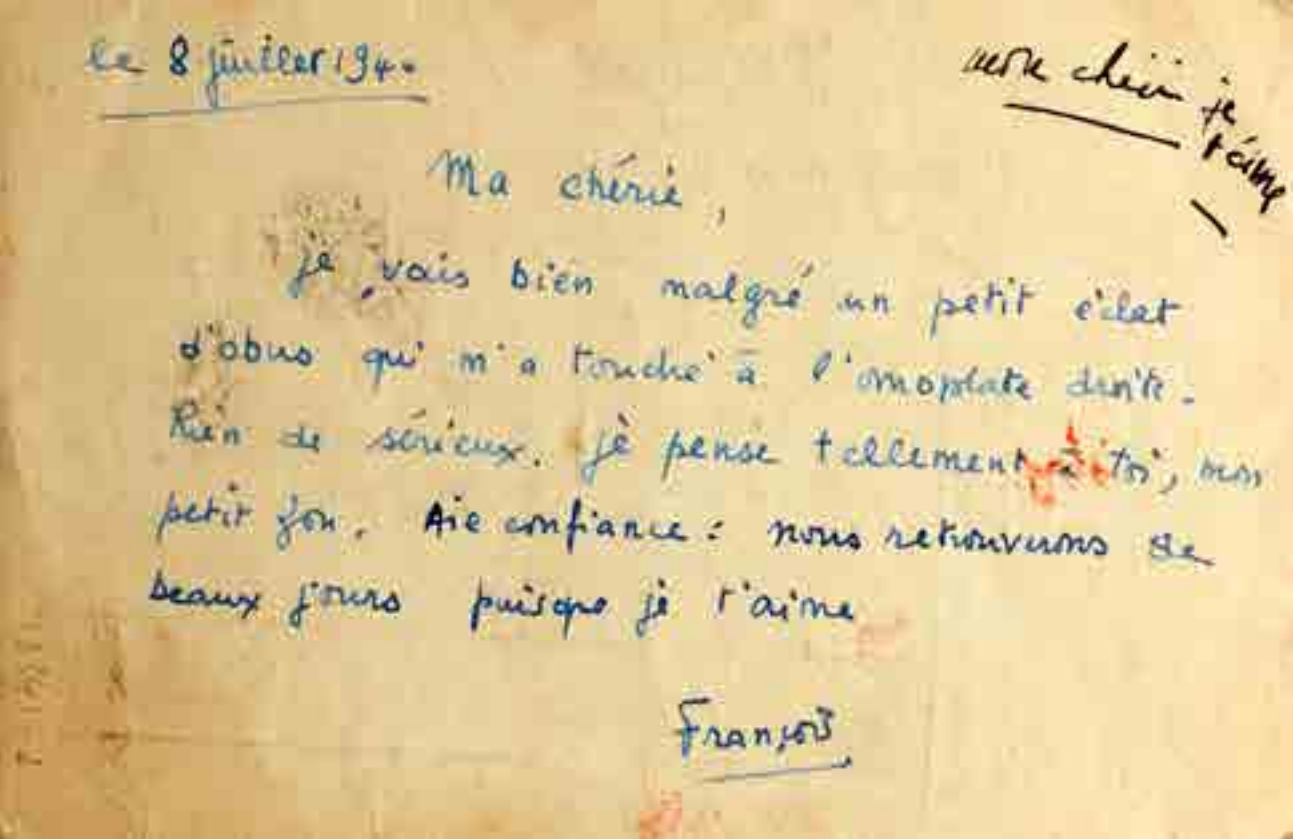 le 8 juillet 1940
mon chéri je
t'aime
Ma chérie,
je vais bien malgré un petit éclat
d'obus qui m'a touché à l'omoplate droite.
Rien de sérieux. je pense tellement à toi, mon
petit fou. Aie confiance : nous retrouverons de
beaux jours puisque je t'aime
François